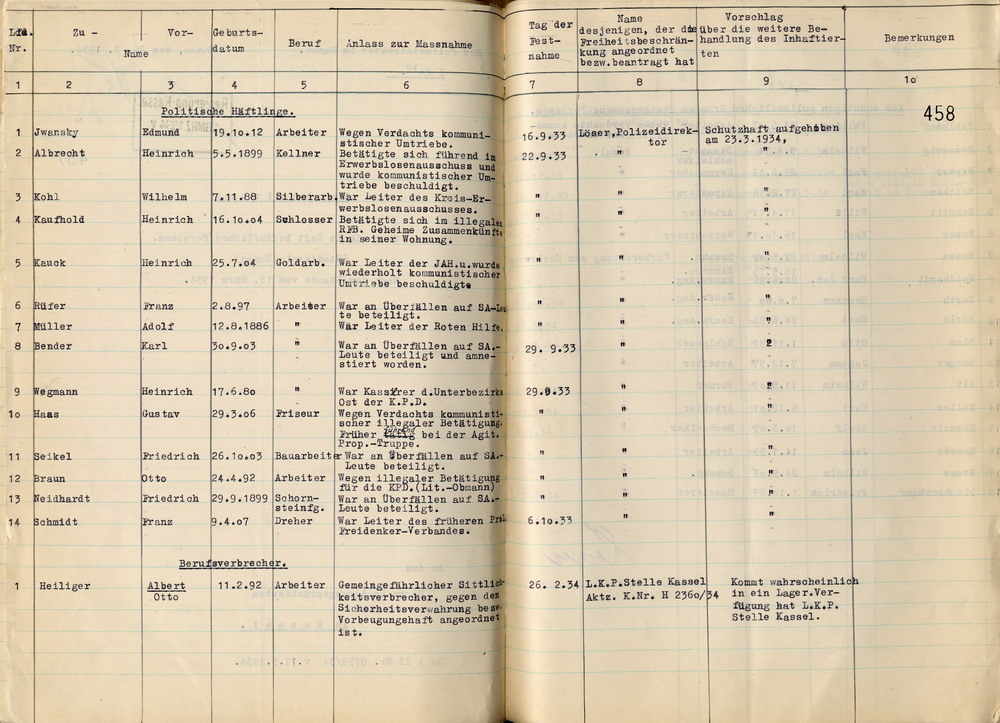 Lfd. Nr. Zu - Name Vor- Geburts-datum Beruf Anlass zur Massnahme Tag der Fest-nahme Name desjenigen, der die Freiheitsbeschrän-kung angeordnet bezw.beantragt hat Vorschlag über die weitere Be-handlung des Inhaftier-ten Bemerkungen
1 2 3 4 5 6 7 8 9 10
458
Politische Häftlinge.
1 Jwansky Edmund 19.10.12 Arbeiter Wegen Verdachts kommuni- 16.9.33 Löser,Polizeidirek- Schutzhaft aufgehoben
stischer Umtriebe. tor am 23.3.1934,
2 Albrecht Heinrich 5.5.1899 Kellner Betätigte sich führend im 22.9.33 " "
Erwerbslosenausschuss und
wurde kommunistischer Um-
triebe beschuldigt.
3 Kohl Wilhelm 7.11.88 Silberarb. War Leiter des Kreis-Er- " " "
werbslosenausschusses.
4 Kaufhold Heinrich 16.10.04 Schlosser Betätigte sich im illegalen " " "
RFB. Geheime Zusammenkünfte
in seiner Wohnung.
5 Kauck Heinrich 25.7.04 Goldarb. War Leiter der JAH.u.wurde " " "
wiederholt kommunistischer
Umtriebe beschuldigt.
6 Rüfer Franz 2.8.97 Arbeiter War an Überfällen auf SA-Leu " " "
te beteiligt.
7 Müller Adolf 12.8.1886 " War Leiter der Roten Hilfe. " " "
8 Bender Karl 30.9.03 " War an Überfällen auf SA.- 29. 9.33 " "
Leute beteiligt und amne-
stiert worden.
9 Wegmann Heinrich 17.6.80 " War Kassirer d.Unterbezirks 29.9.33 " "
Ost der K.P.D.
10 Haas Gustav 29.3.06 Friseur Wegen Verdachts kommunisti- " " "
scher illegaler Betätigung.
Früher tätig bei der Agit.
Prop.-Truppe.
11 Seikel Friedrich 26.10.03 Bauarbeiter War an Überfällen auf SA.- " " "
Leute beteiligt.
12 Braun Otto 24.4.92 Arbeiter Wegen illegaler Betätigung " " "
für die KPD.(Lit.-Obmann)
13 Neidhardt Friedrich 29.9.1899 Schorn- War an Überfällen auf SA.- " " "
steinfg. Leute beteiligt.
14 Schmidt Franz 9.4.07 Dreher War Leiter des früheren Prol. 6.10.33 " "
Freidenker-Verbandes.
Berufsverbrecher.
1 Heiliger Albert 11.2.92 Arbeiter Gemeingefährlicher Sittlich- 26. 2.34 L.K.P.Stelle Kassel Kommt wahrscheinlich
Otto keitsverbrecher, gegen den Aktz. K.Nr. H 2360/34 in ein Lager.Ver-
Sicherheitsverwahrung bezw. fügung hat L.K.P.
Vorbeugungshaft angeordnet Stelle Kassel.
ist.